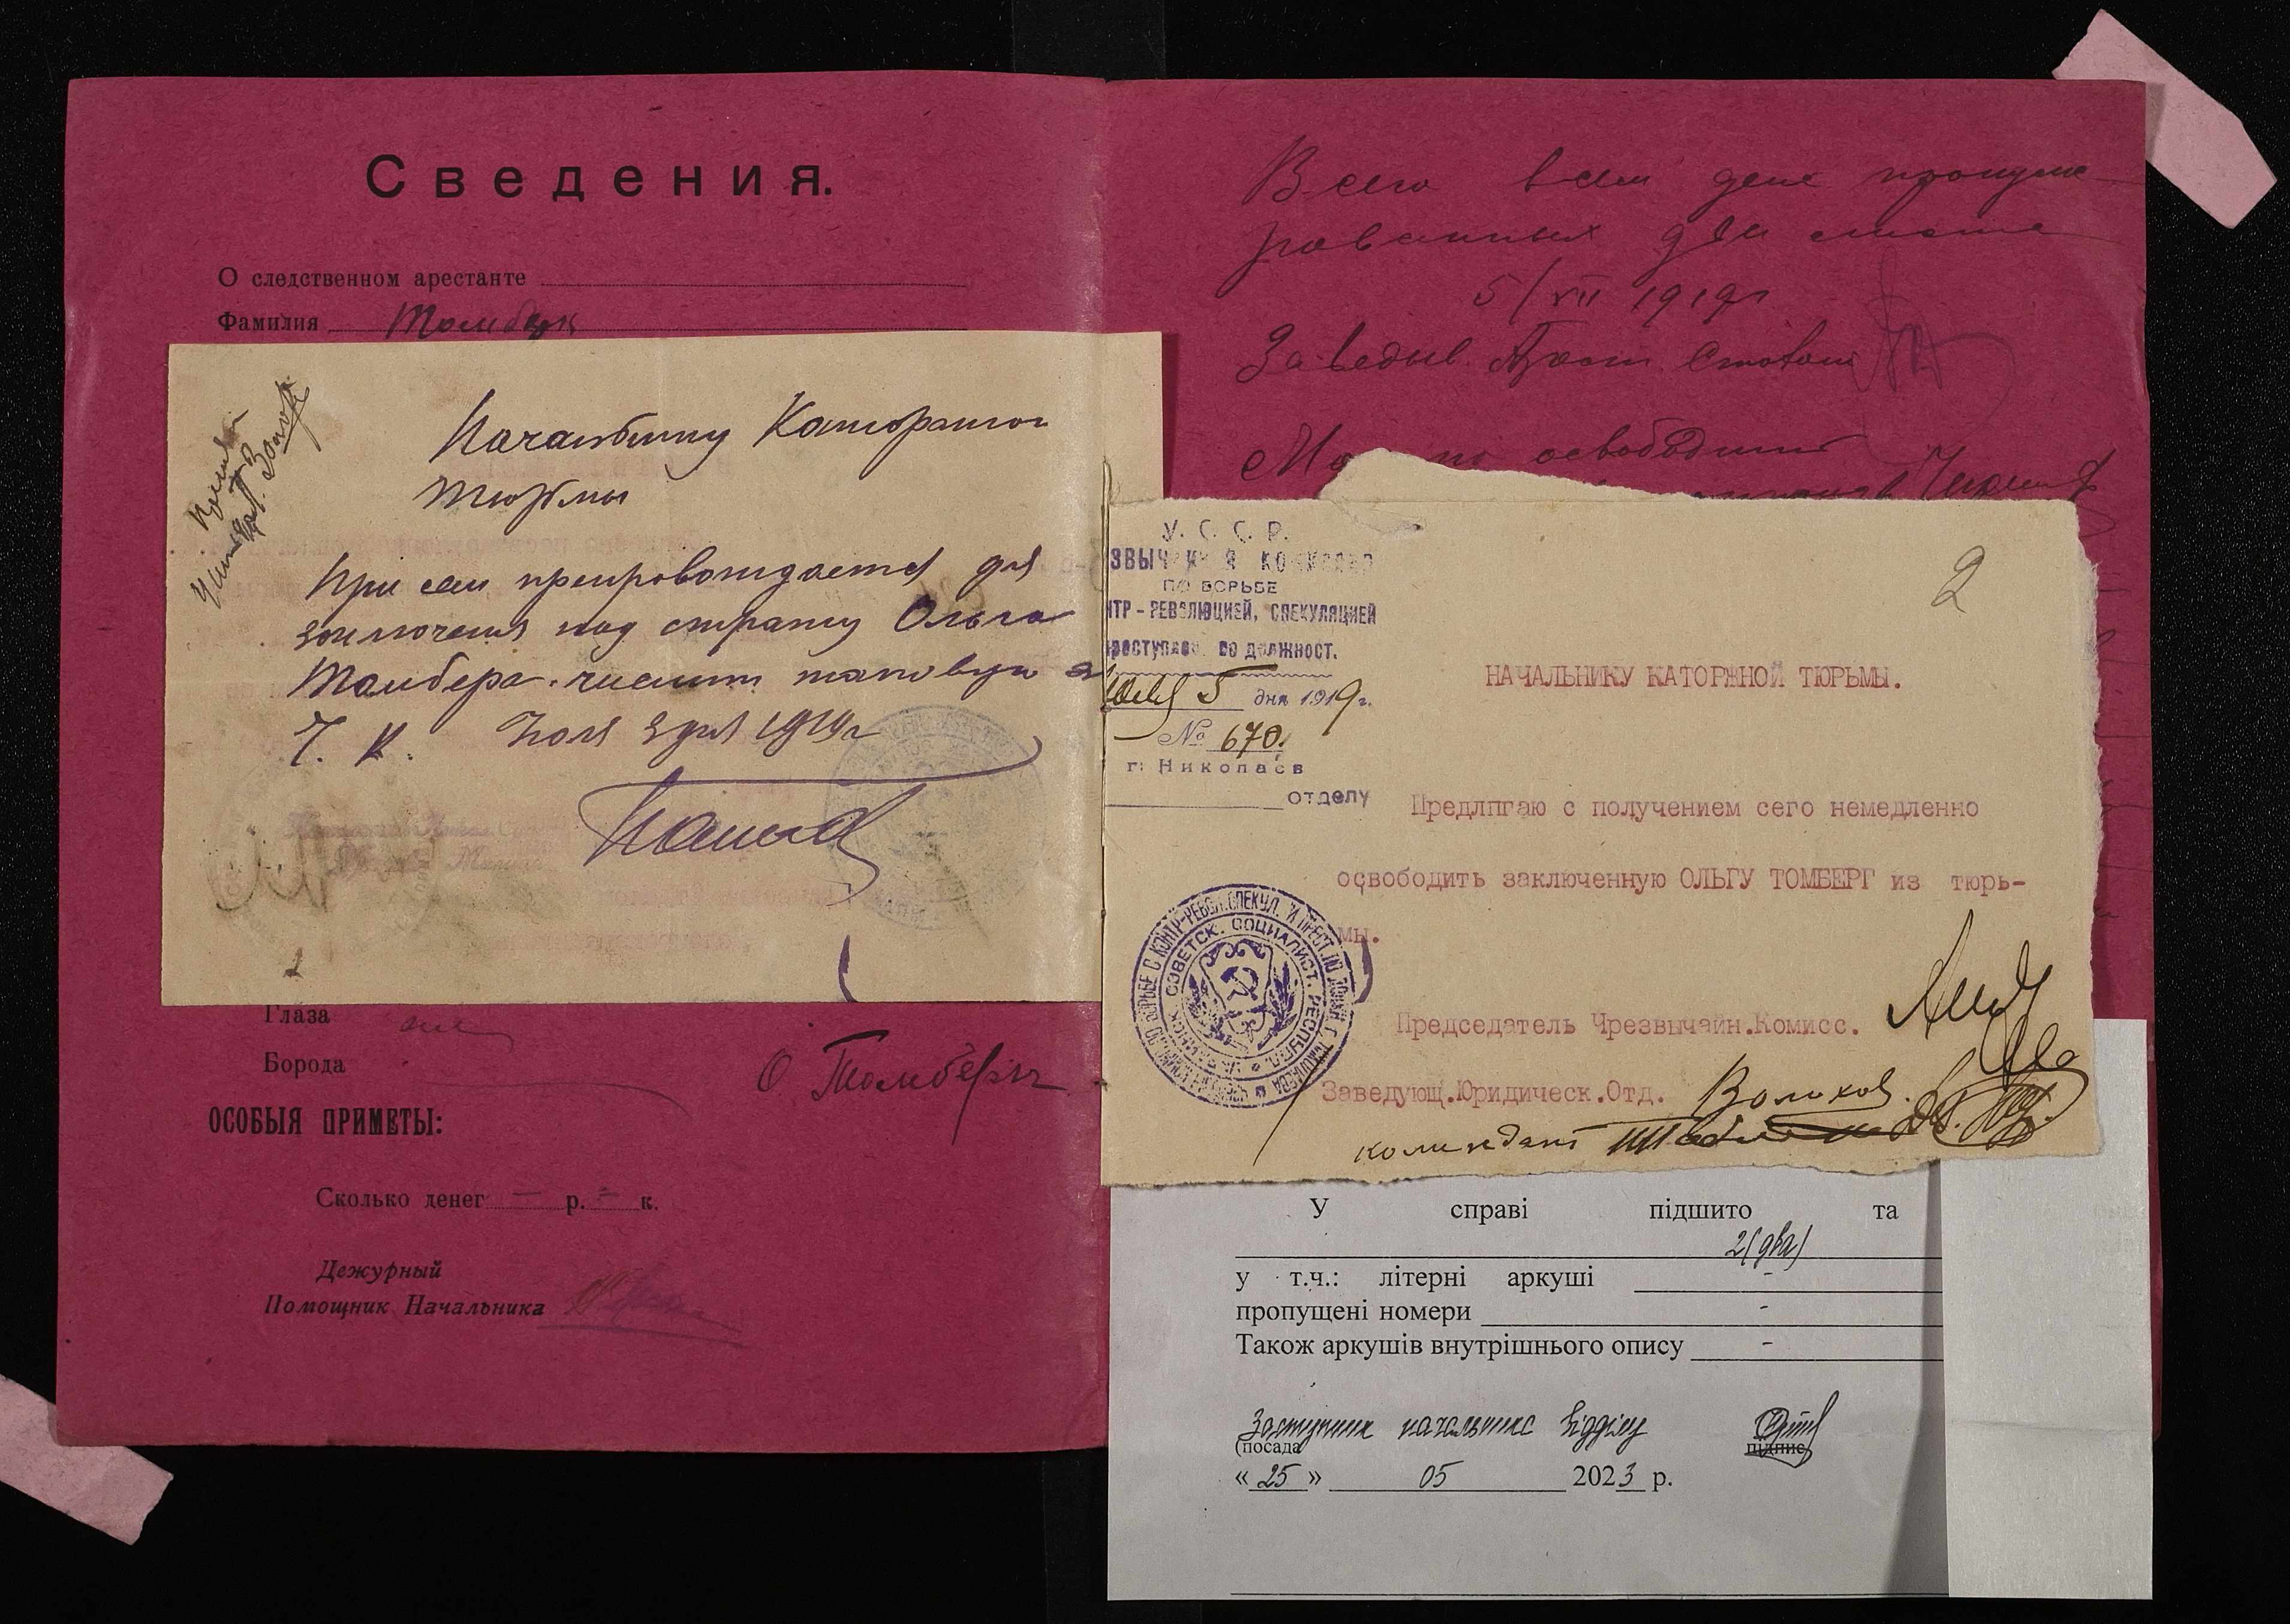 Сведения.
О следственном арестанте
Фамилия Томберг
Начальнику Каторжной
Тюрьмы
При сем препровождается для
заключения под стражу Ольга
Томберг. числить таковую за
Ч. К. Июля 3 дня 1919 г
1
Глаза
Борода
О. Томберг
ОСОБЫЯ ПРИМЕТЫ:
Сколько денег — р. — к.
Дежурный
Помощник Начальника
Всего в сем деле пронуме-
рованных два листа
5/VII 1919 г
Заведыв. Арест. Столом
освободить
2
У. С. С. Р.
ЗВЫЧАЙНАЯ КОМИССИЯ
ПО БОРЬБЕ
НТР-РЕВОЛЮЦИЕЙ, СПЕКУЛЯЦИЕЙ
реступлен. по должност.
июля 5 дня 1919 г.
№ 670.
г. Николаев
отделу
НАЧАЛЬНИКУ КАТОРЖНОЙ ТЮРЬМЫ.
Предлпгаю с получением сего немедленно
освободить заключенную ОЛЬГУ ТОМБЕРГ из тюрь-
мы.
Председатель Чрезвычайн.Комисс.
Заведующ.Юридическ.Отд. Волохов.
комендант
У справі підшито та
2(два)
у т.ч.: літерні аркуші -
пропущені номери -
Також аркушів внутрішнього опису -
Заступник начальника відділу
(посада
підпис
« 25 » 05 2023 р.